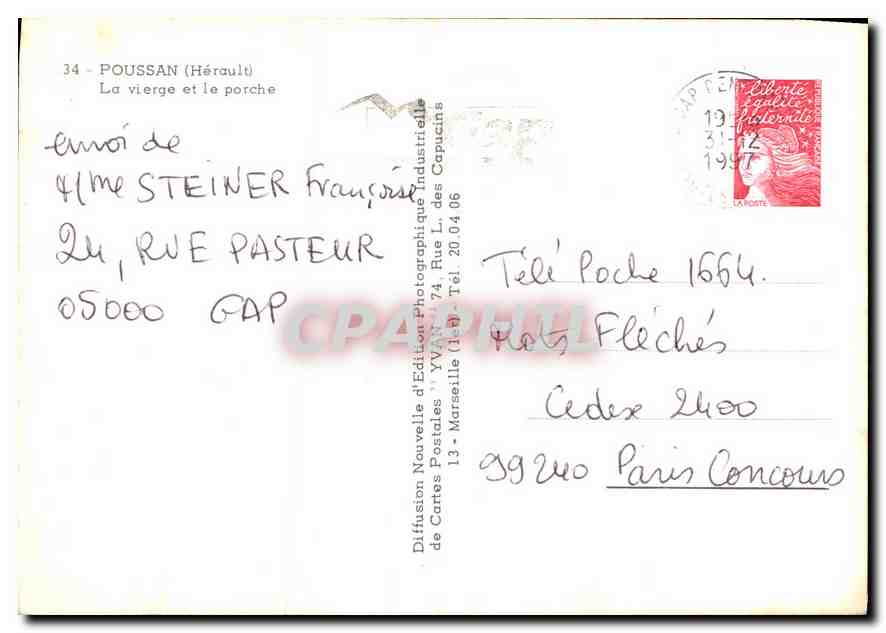 34 - POUSSAN (Hérault)
La vierge et le porche
envoi de
Mme STEINER Françoise
24, RUE PASTEUR
05000 GAP
Diffusion Nouvelle d'Edition Photographique Industrielle
de Cartes Postales "YVAN" 74, Rue L. des Capucins
13 - Marseille (1er) - Tél. 20.04 06
GAP
31-12
1997
liberté
égalité
fraternité
RÉPUBLIQUE FRANÇAISE
LA POSTE
Télé Poche 1664.
Mots Fléchés
Cedex 2400
99240 Paris Concours
CPAPHIL